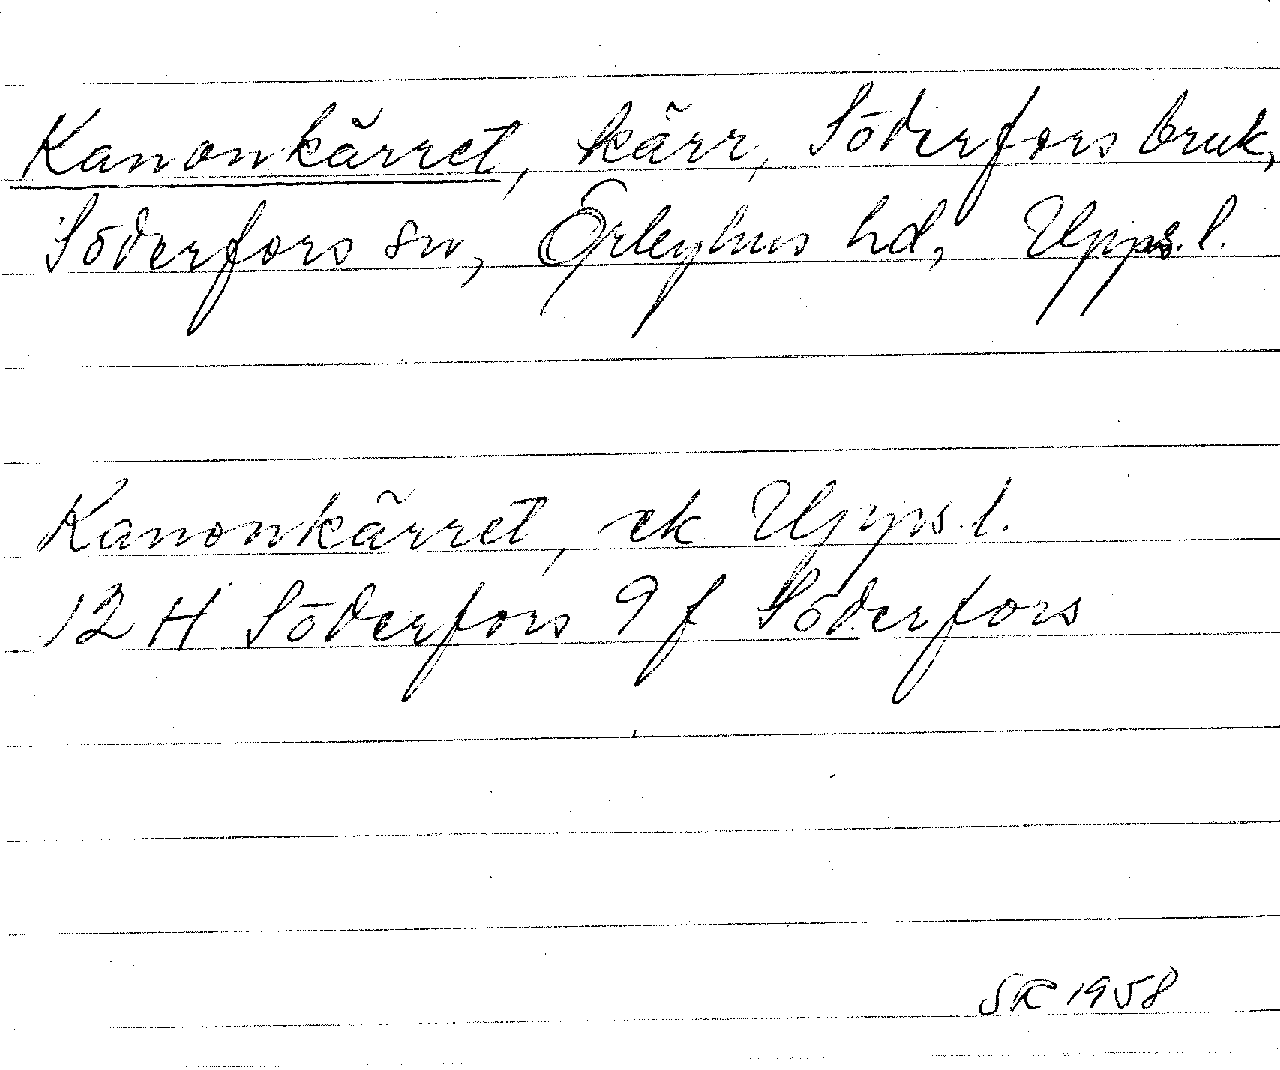 Kanonkärret, kärr, Söderfors bruk,
Söderfors sn, Örbyhus hd, Upps. l.
Kanonkärret, ek Upps. l.
12 H Söderfors 9 f Söderfors
SK 1958